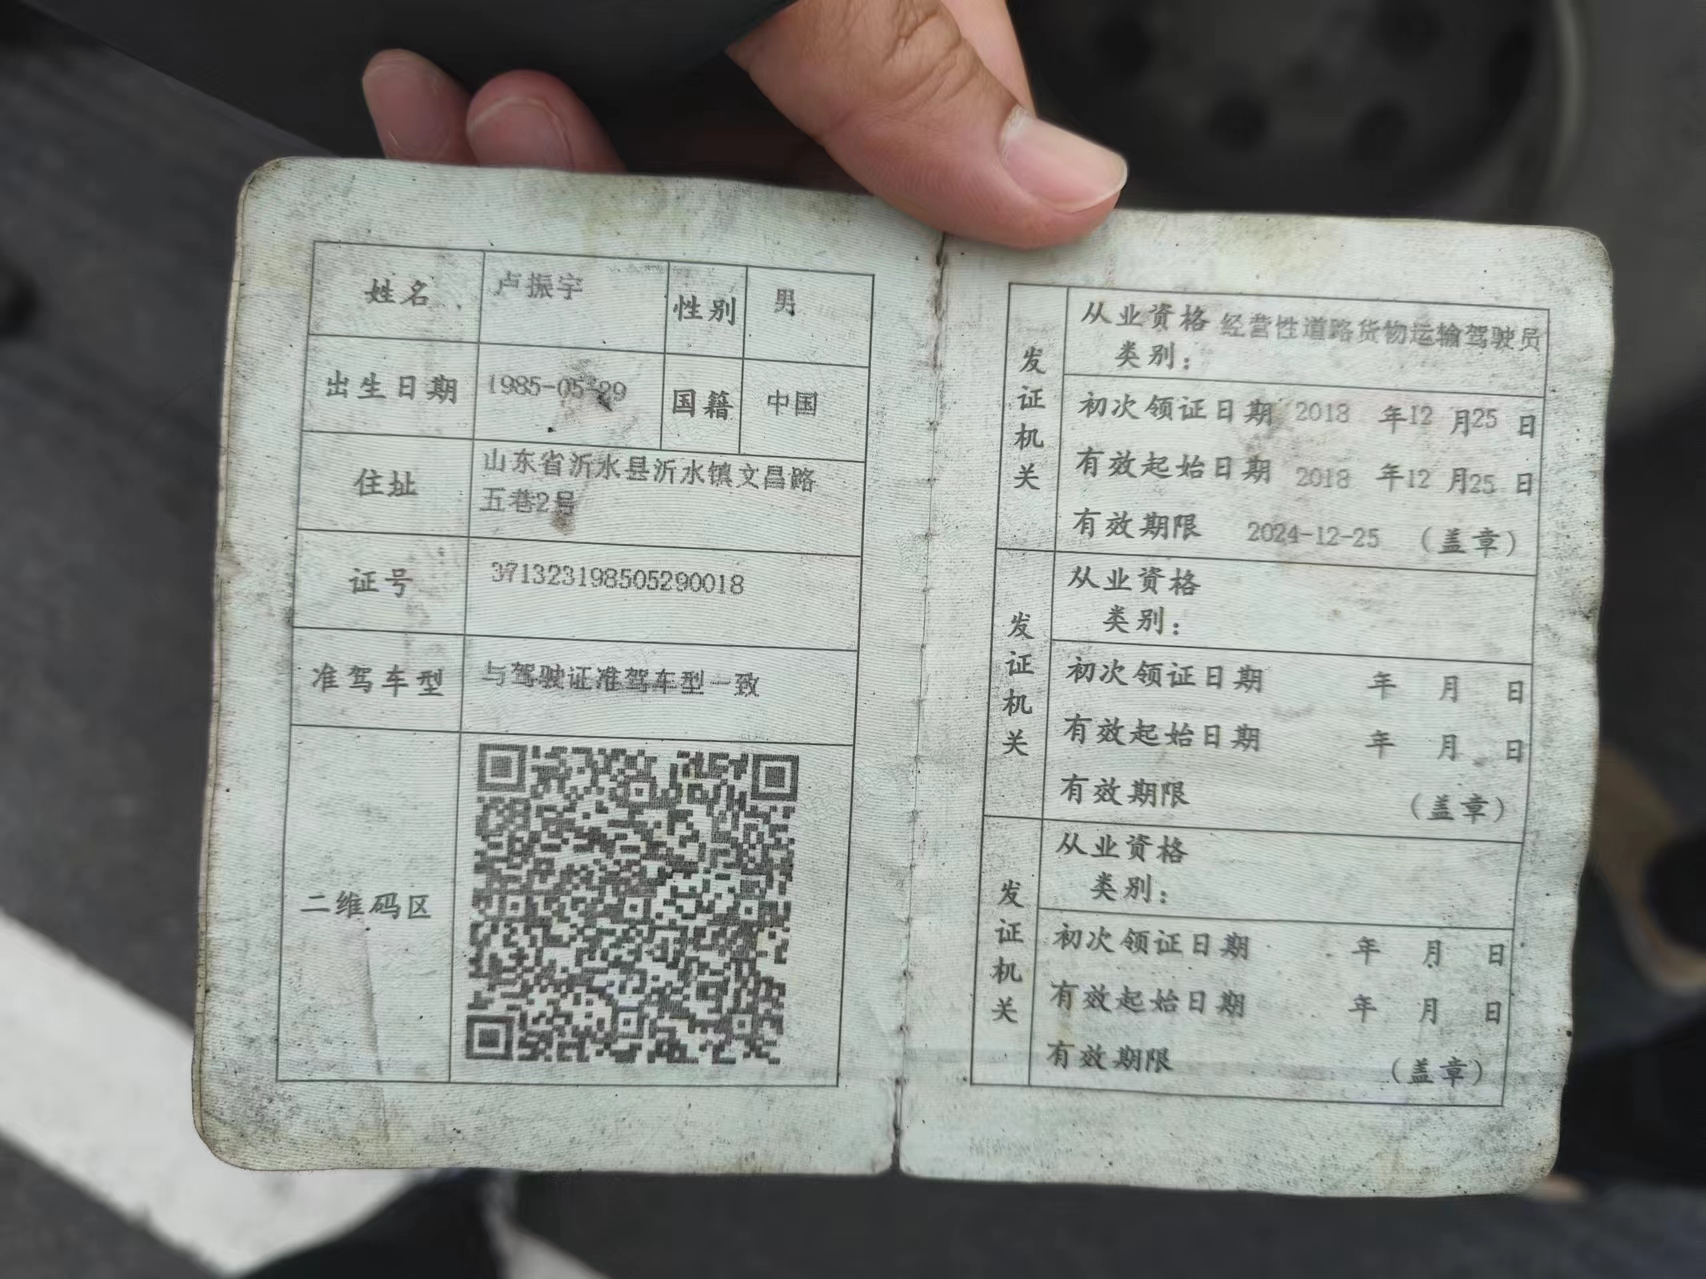 姓名 卢振宇 性别 男
出生日期 1985-05-29 国籍 中国
住址 山东省沂水县沂水镇文昌路
五巷2号
证号 371323198505290018
准驾车型 与驾驶证准驾车型一致
二维码区
发证机关
从业资格 经营性道路货物运输驾驶员
类别：
初次领证日期 2018 年12 月25 日
有效起始日期 2018 年12 月25 日
有效期限 2024-12-25 （盖章）
发证机关
从业资格
类别：
初次领证日期 年 月 日
有效起始日期 年 月 日
有效期限 （盖章）
发证机关
从业资格
类别：
初次领证日期 年 月 日
有效起始日期 年 月 日
有效期限 （盖章）